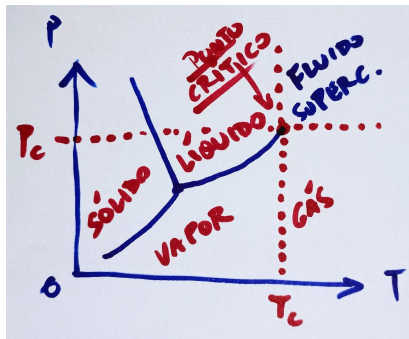 P
PUNTO
CRÍTICO
FLUIDO
SUPERC.
Pc
LÍQUIDO
SÓLIDO
VAPOR
GÁS
O
Tc
T